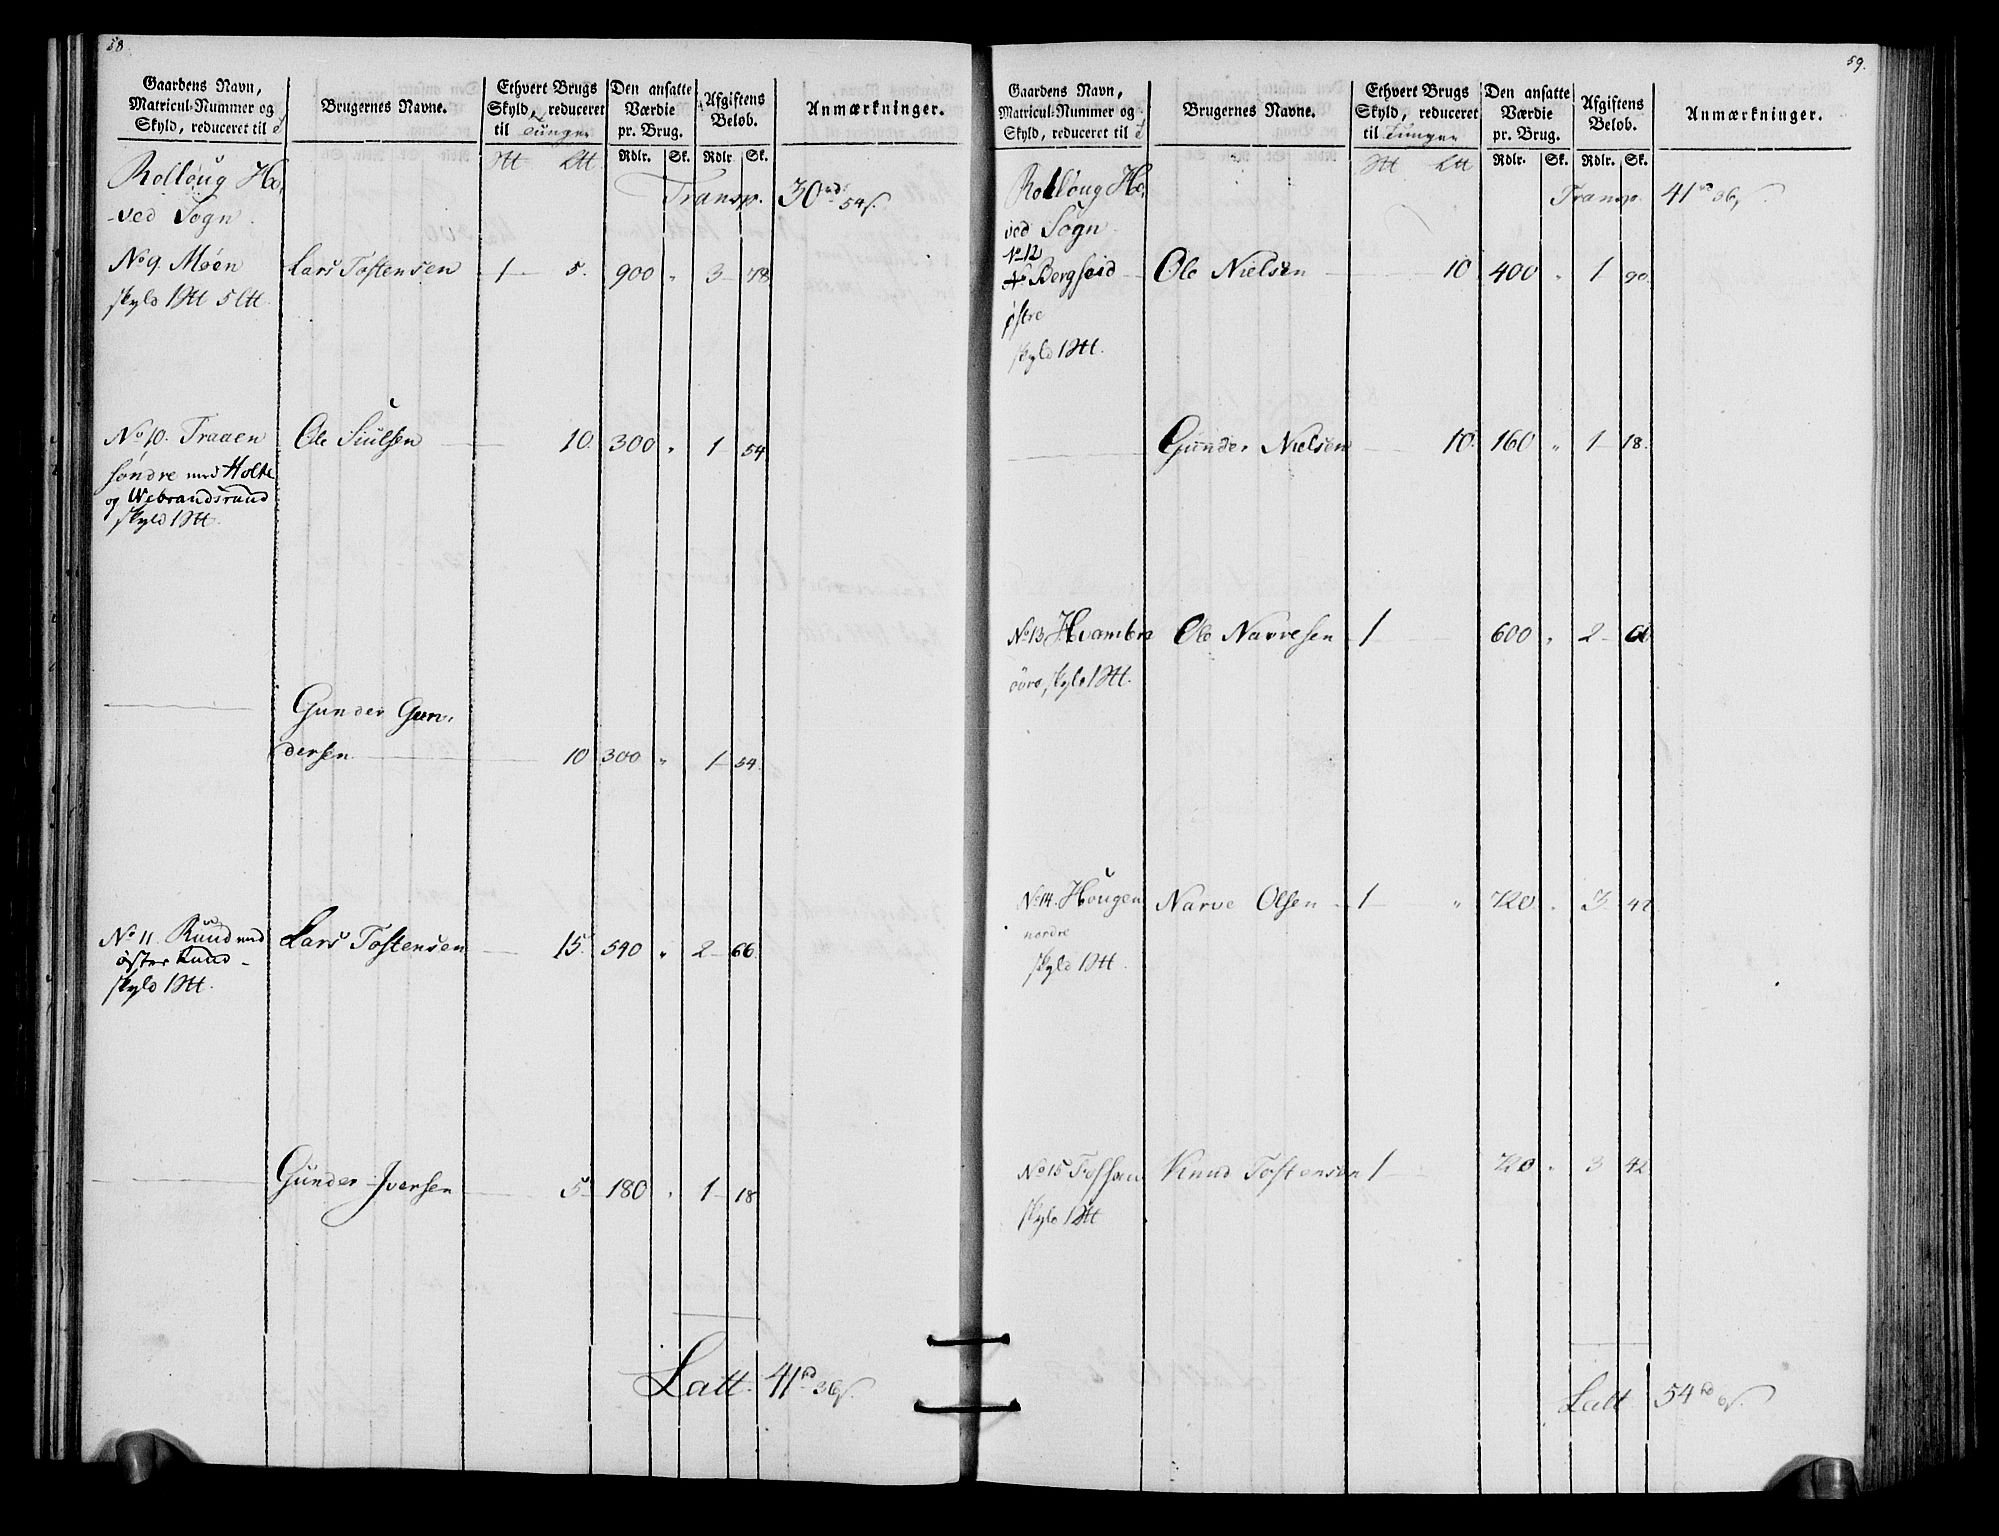 58.
Gaardens Navn, Matricul-Nummer og Skyld, reduceret til
Brugernes Navne.
Ethvert Brugs Skyld, reduceret til Tunger
Den ansatte Værdie pr. Brug.
Afgiftens Beløb.
Anmærkninger.
Rdlr. Sk. Rdlr Sk.
Rolloug Ho-
ved Sogn
Transp. 30 rd 54 s.
No 9. Moen Lars Tostensen 1 5. 900 " 3 78
skyld 1 Htt 5 Ltt.
No 10. Traaen Ole Siulsen 10. 300 " 1 54
søndre med Holte
og Webrandsruud
skyld 1 Htt.
Gunder Gun-
dersen 10 300 " 1 54.
No 11. Ruud med Lars Tostensen 15. 540 " 2 66
øster Ruud
skyld 1 Htt.
Gunder Iversen 5. 180 " 1 18
Latt. 41 rd 36 s.
59.
Gaardens Navn, Matricul-Nummer og Skyld, reduceret til
Brugernes Navne.
Ethvert Brugs Skyld, reduceret til Tunger
Den ansatte Værdie pr. Brug.
Afgiftens Beløb.
Anmærkninger.
Rdlr. Sk. Rdlr. Sk.
Rolloug Ho-
ved Sogn
Transp. 41 rd 36 s.
No 12
Bergseid Ole Nielsen 10 400 " 1 90.
østre
skyld 1 Htt.
Gunder Nielsen 10. 160 " 1 18.
No 13 Hvambra Ole Narvesen 1 600 " 2
øvre, skyld 1 Htt.
No 14. Hougen Narve Olsen 1 " 720 " 3 42
nordre
skyld 1 Htt.
No 15 Knud Tostensen 1 720 " 3 42
skyld 1 Htt
Latt 54 rd 6 s.